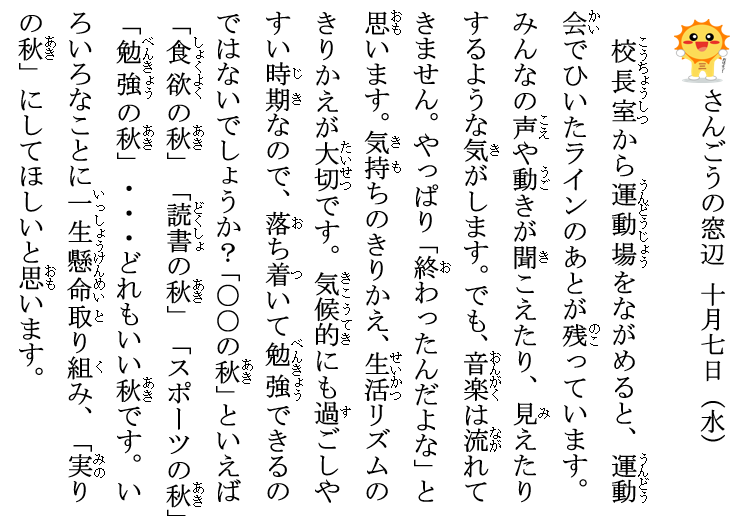 さんごうの窓辺 十月七日（水）
校長室から運動場をながめると、運動
会でひいたラインのあとが残っています。
みんなの声や動きが聞こえたり、見えたり
するような気がします。でも、音楽は流れて
きません。やっぱり「終わったんだよな」と
思います。気持ちのきりかえ、生活リズムの
きりかえが大切です。気候的にも過ごしや
すい時期なので、落ち着いて勉強できるの
ではないでしょうか？「〇〇の秋」といえば
「食欲の秋」「読書の秋」「スポーツの秋」
「勉強の秋」・・・どれもいい秋です。い
ろいろなことに一生懸命取り組み、「実り
の秋」にしてほしいと思います。